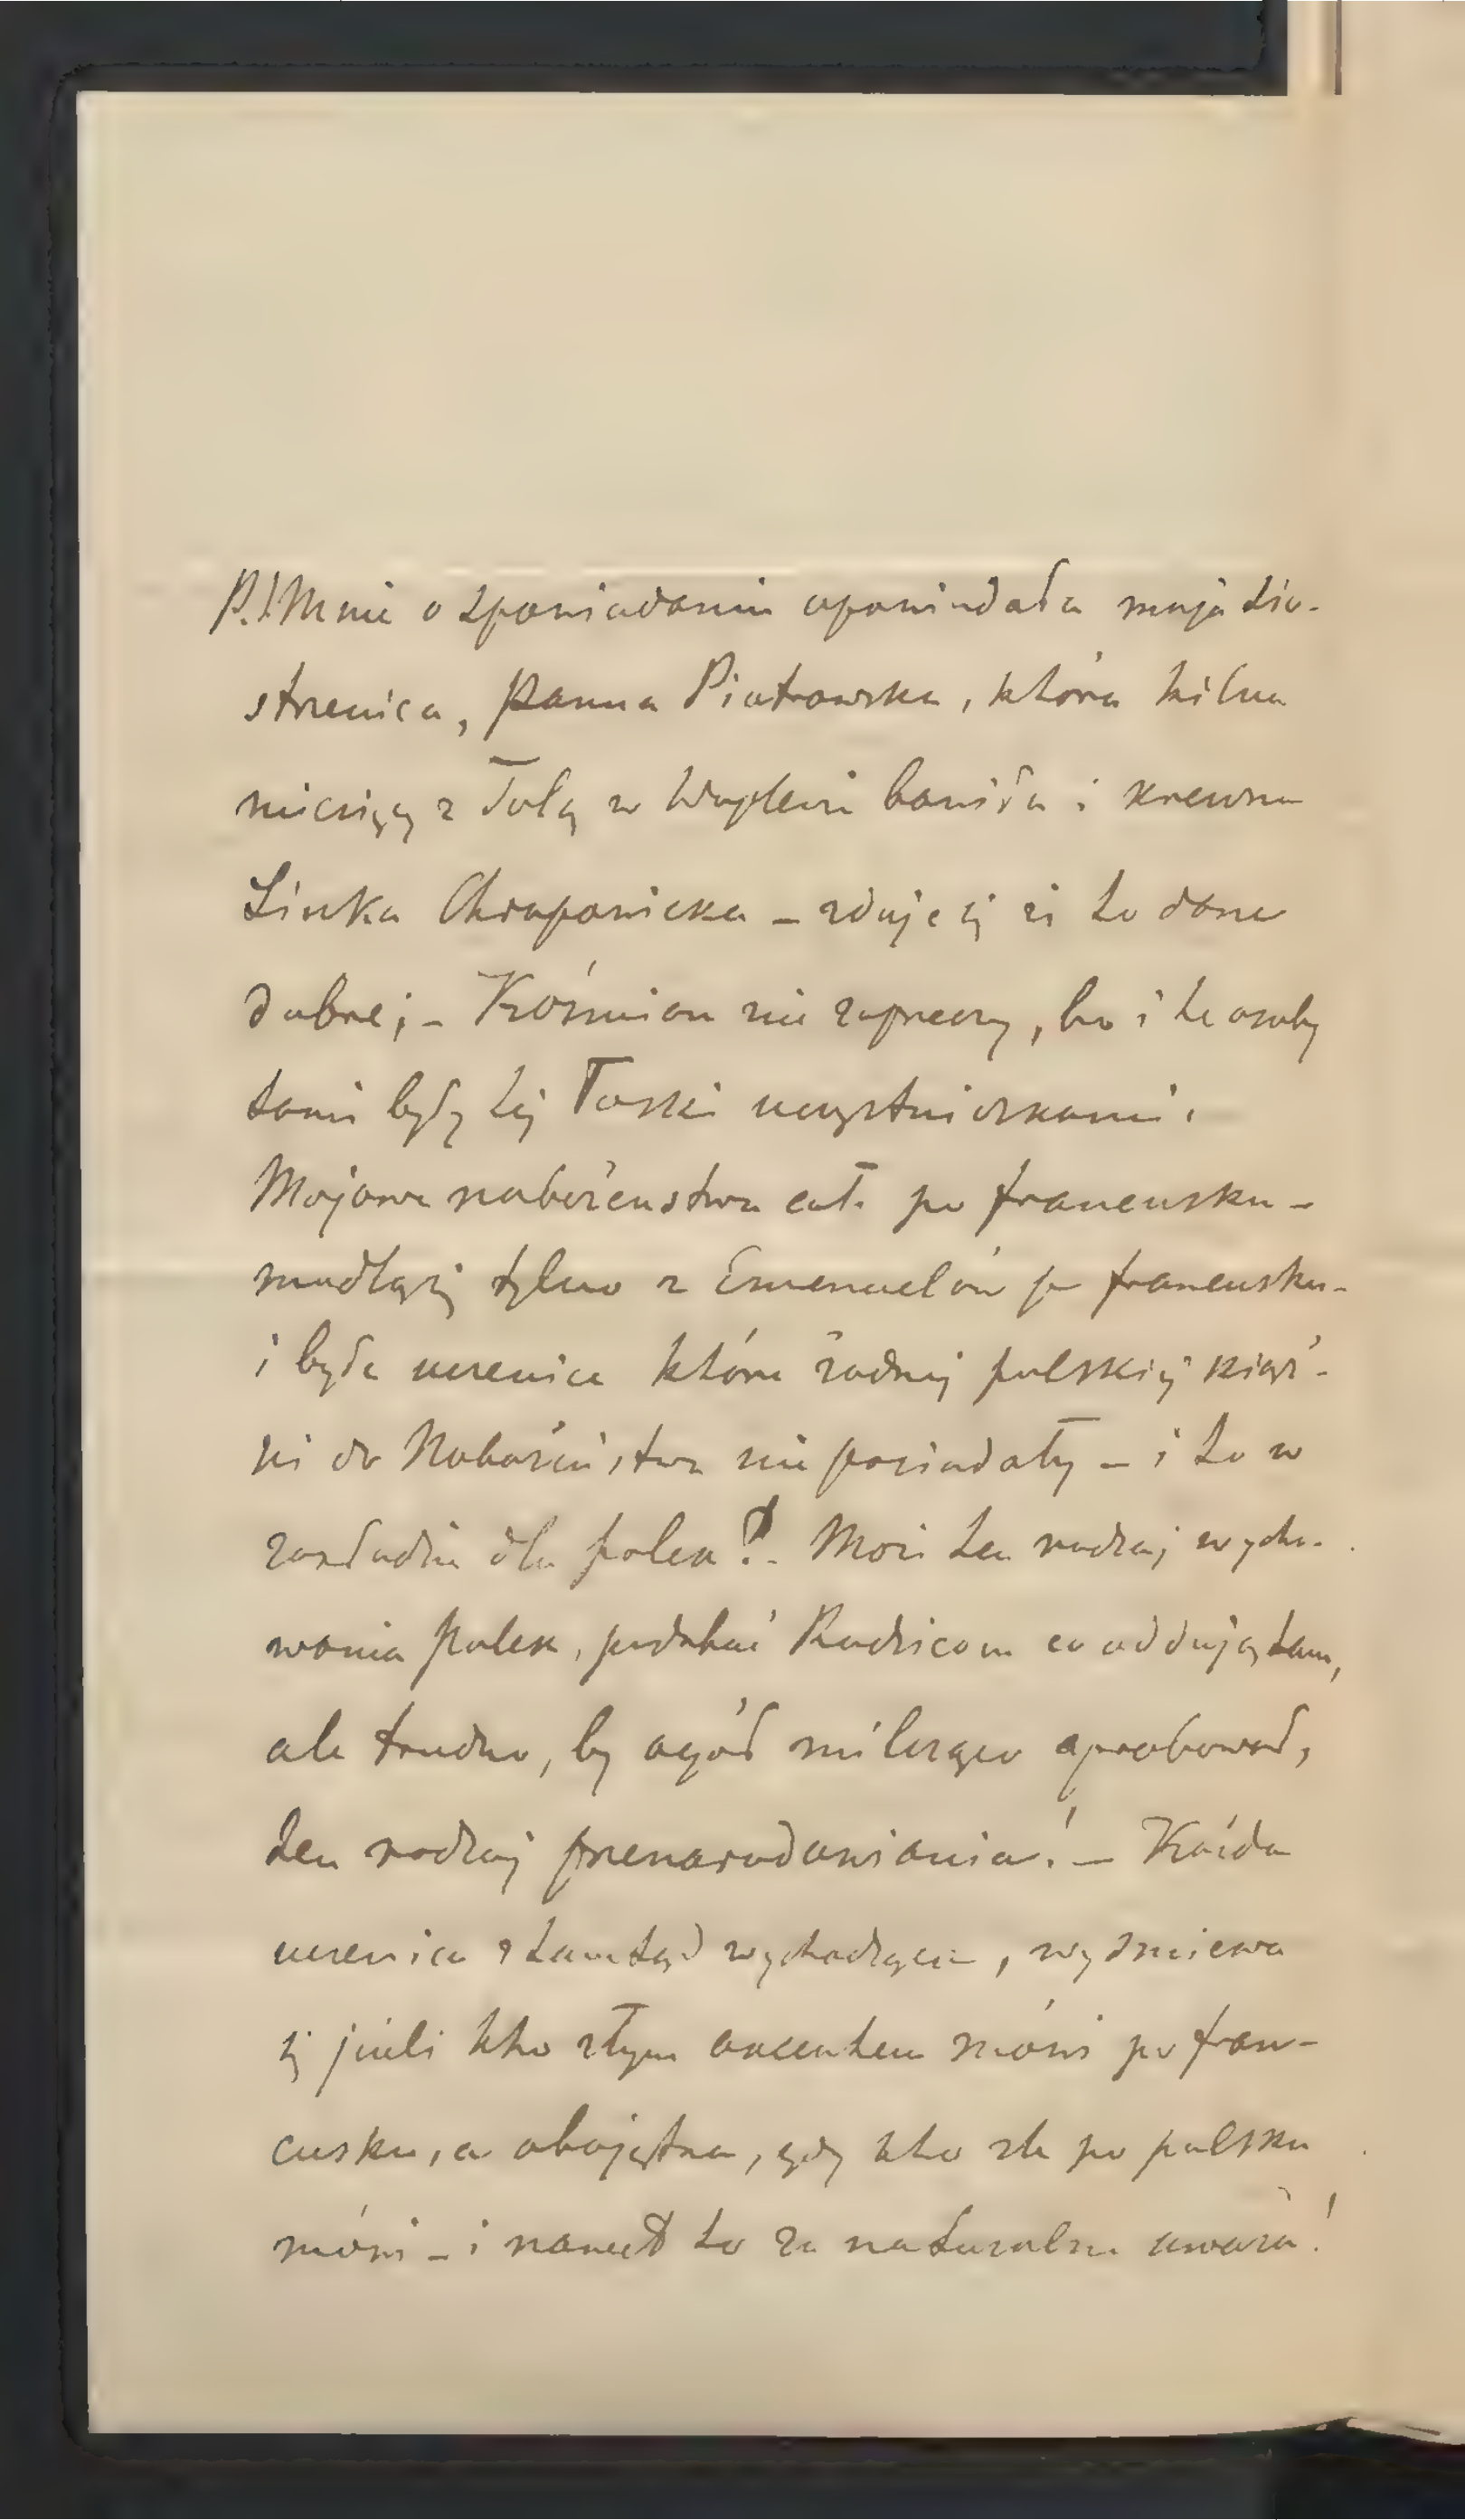 P.S Mnie o spowiadaniu opowiadała moja sio-
strzenica, Panna Piotrowska, która kilka
miesięcy z Tolą w bawiła i krewna
Linka Chrapowicka – zdaje się że to dane
dobre; – Koźmian nie zaprzeczy, bo i te osoby
same były tej Łaski uczestniczkami.
Majowe nabożeństwa całe po francusku –
modlą się tylko z po francusku –
i były uczenice które żadnej polskiej książ-
ki do Nabożeństwa nie posiadały – i to w
zakładzie dla polek? – Może ten rodzaj wycho-
wania polek, podobać Rodzicom co oddają tam,
ale trudno, by ogół milcząco aprobował,
ten rodzaj przenarodawiania! – Każda
uczenica stamtąd wychodząca, wyśmiewa
się jeżeli kto złym akcentem mówi po fran-
cusku, a obojętna, gdy kto źle po polsku
mówi – i nawet to za naturalne uważa!